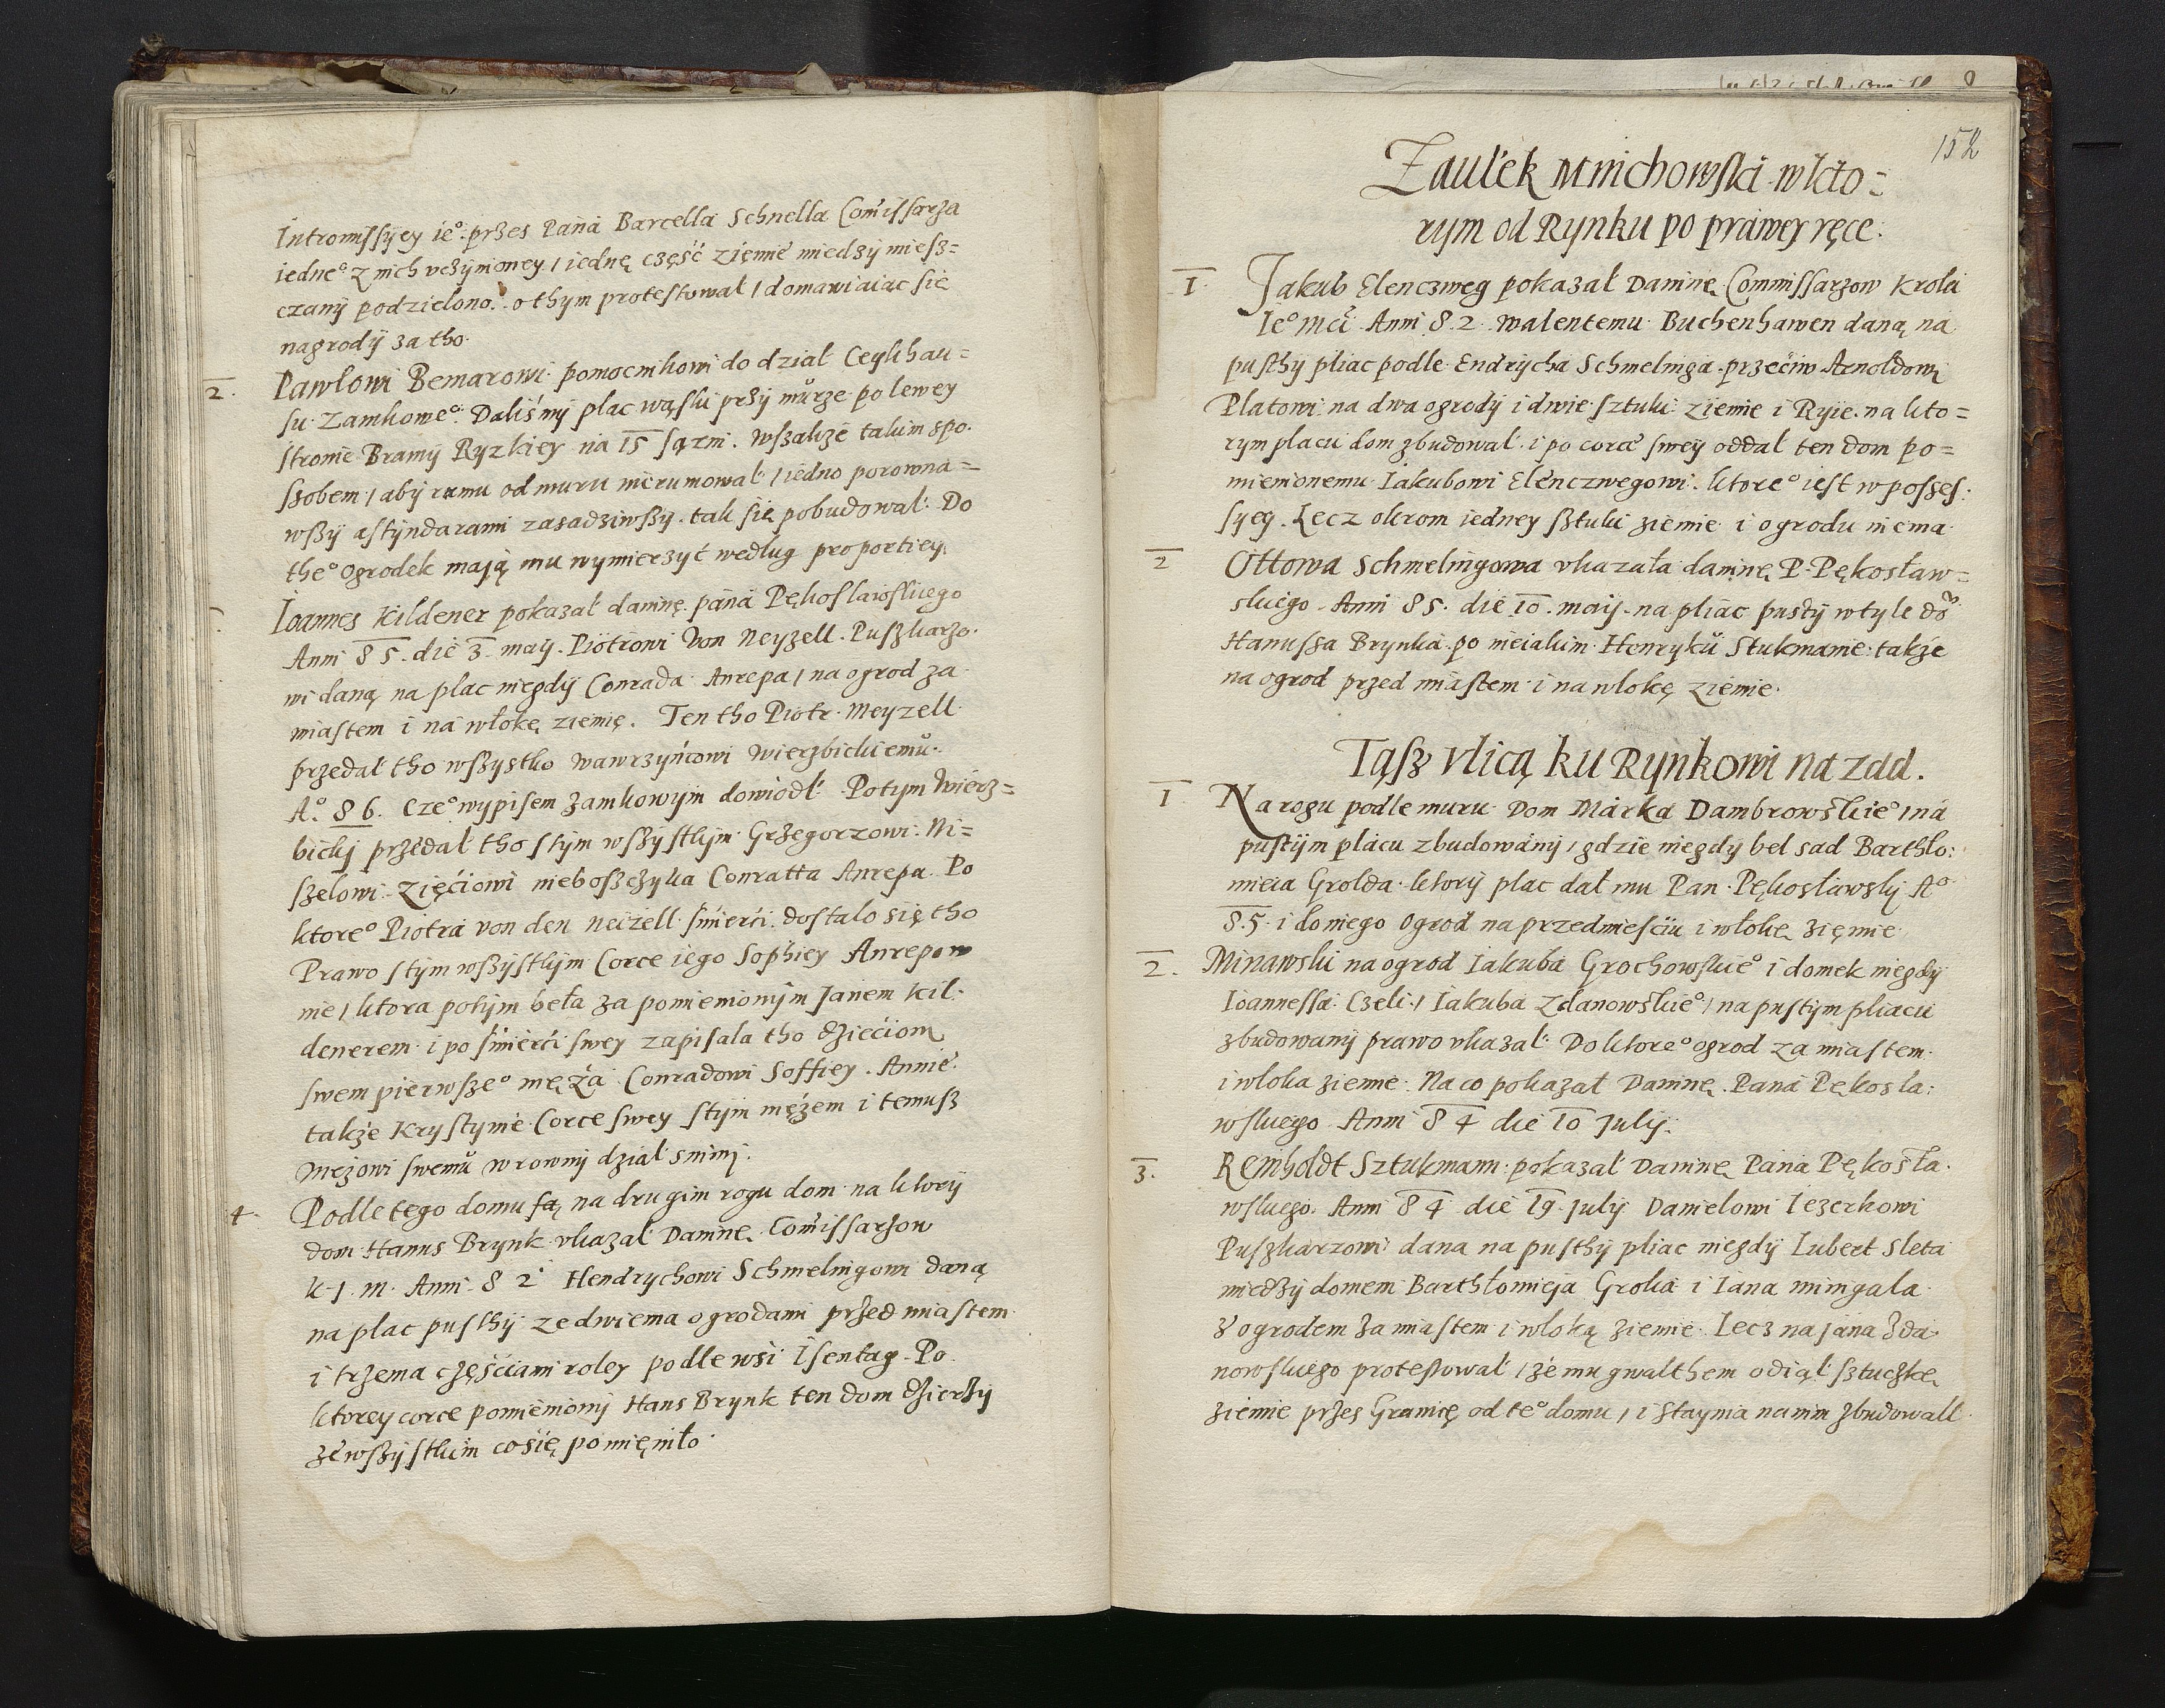 Intromissÿey ie°. przes Pana Barcella Schnella Comissarza
iedne° z nich vczÿnioney / iednę część zięmie miedzÿ miesz=
czanÿ podzielono. o thym protestował / domawiaiac się
nagrodÿ za tho.
2. Pawłowi Bemarowi pomocnikowi do dział Ceykhau=
su Zamkowe°. Daliśmÿ plac wąski przÿ můrze po lewey
stronie Bramÿ Ryzkiey na 15 sązni. Wszakże takim spo.
szobem / abÿ rumu od muru nierumował / iedno porowna=
wszÿ astÿndarami zasadziwszÿ. tak się pobudował. Do
the° Ogrodek mają mu wymierzyć według proportieÿ
Ioannes Kildener pokazał daninę pana Pękoslawskiego
Anni 85. die 3. maÿ. Piotrowi Von Neyzell. Puszkarzo.
wi daną na plac niegdÿ Conrada Anrepa / na ogrod za
miastem i na włokę ziemię. Ten tho Piotr Meyzell
przedał tho wszystko Wawrzyńcowi Wierzbickiemů.
A°. 86. Cze° wypisem zamkowÿm dowiodł. Potym Wierz=
bickÿ przedał tho stÿm wszÿstkÿm Grzegorzowi. Ni=
szelowi Zięćiowi nieboszczyka Conratta Anrepa. Po
ktore° Piotra von den Neizell śmierći. dostało się tho
Prawo stÿm wszÿstkÿm Corce iego Sophiey Anrepow
nie / ktora potÿm beła za pomienionÿm Janem Kil.
denerem. i po śmierći swey zapisala tho dziećiom
swem pierwsze° męża Conradowi Soffiey. Annie.
także Krystynie Corce swey stÿm mężem i temusz
Mężowi swemů w rownÿ dział snimi.
4. Podle tego domu są na drugim rogu dom na ktorÿ
dom Hanus Brynk vkazał Daninę Comissarzow
K. J. M. Anni. 82 Hendrychowi Schmelingowi daną
na plac pusthÿ ze dwiema ogrodami przed miastem
i trzema częśćiami roley podle wsi Isentag. Po
ktorey corce pomienionÿ Hans Brynk ten dom dzierzÿ
ze wszÿstkim co się pomięniło.
152
Zaulek Mnichowski w kto=
rym od Rynku po prawey ręce.
1. Jakub Elenczweg pokazał Daninę Commissarzow Krola
Ie° Mci Anni 8.2. Walentemu Buchenhawen daną na
pusthy pliac podle Endrycha Schmelinga przećiw Arnoldowi
Platowi na dwa ogrodÿ i dwie sztuki ziemie i Ryie. na kto=
rym placu dom zbudował. i po corce swey oddał ten dom po=
mienionemu Iakubowi Elenczwegowi. ktore° iest w posses.
syeÿ. Lecz okrom iedney sztuki ziemie i ogrodu niema
2 Ottowa Schmelingowa vkazała daninę P. Pękosław=
skiego. Anni 85. die 10. maÿ. na pliac pustÿ w tyle do
Hanussa Brynka po nieiakim Henrykŭ Stukmanie także
na ogrod przed miastem i na włokę ziemie.
Tąsz vlicą ku Rynkowi na zad.
1 Na rogu podle muru Dom Marka Dambrowskie° / na
pustÿm placu zbudowanÿ / gdzie niegdÿ bel sad Barthło:
mieia Grolda. ktorÿ plac dał mu Pan. Pękosławskÿ A°
8.5. i do niego Ogrod na przedmieściu i włokę ziemie
2. Minawski na ogrod Iakuba Grochowskie° i domek niegdÿ
Ioannessa Czeli. / Iakuba Zdanowskie° / na pustÿm pliacu
zbudowanÿ prawo vkazał. Do ktore° ogrod za miastem
i włoka ziemie. Na co pokazał Daninę. Pana Pękosła.
wskiego Anni 84 die 10 Julÿ.
3. Reinholdt Sztukmann pokazał Daninę Pana Pękosła.
wskiego. Anni 84 die 19. Julÿ Danielowi Iezerkowi
Puszkarzowi dana na pusthÿ pliac niegdÿ Lubert Sleta
miedzÿ domem Barthłomieja Groka i Iana mingala
z ogrodem za miastem i włoką ziemie. Lecz na Jana Zda
nowskiego protestował / że mu gwałthem odiął sztuczkę
ziemie przes Granię od te° domu / i Staynia na nim zbudowall.